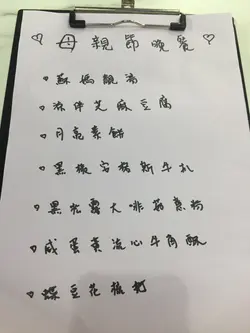 ♡ 母親節晚餐 ♡
• 蘇媽靚湯
• 涼伴芝麻豆腐
• 月亮素餅
• 黑椒安格斯牛扒
• 黑松露大啡菇意粉
• 咸蛋黃流心牛角酥
• 蝶豆花梳打